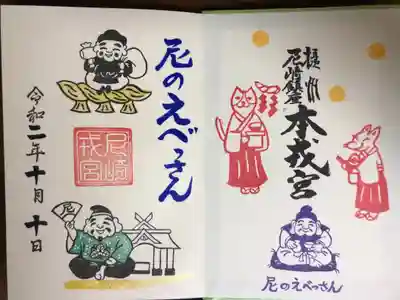 摂州
尼崎鎮座
本戎宮
尼のえべっさん
尼のえべっさん
尼崎
戎宮
尼
令和二年十月十日